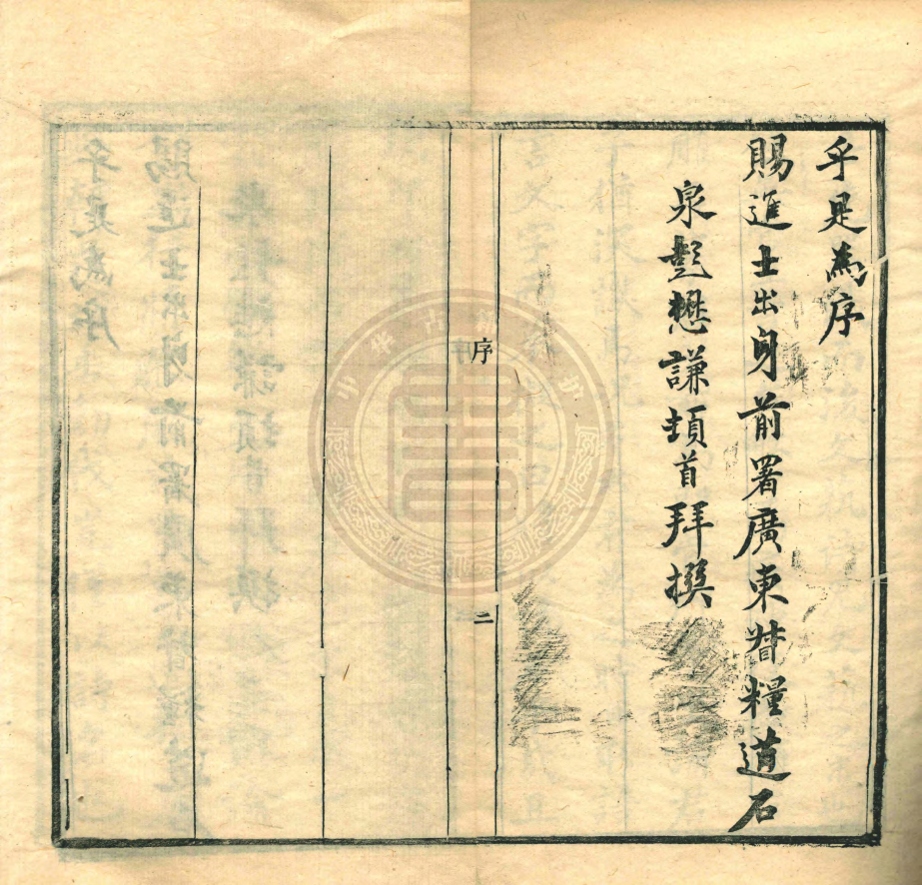 乎是為序
賜進士出身前署廣東督糧道石
泉彭懋謙頓首拜撰
序
二